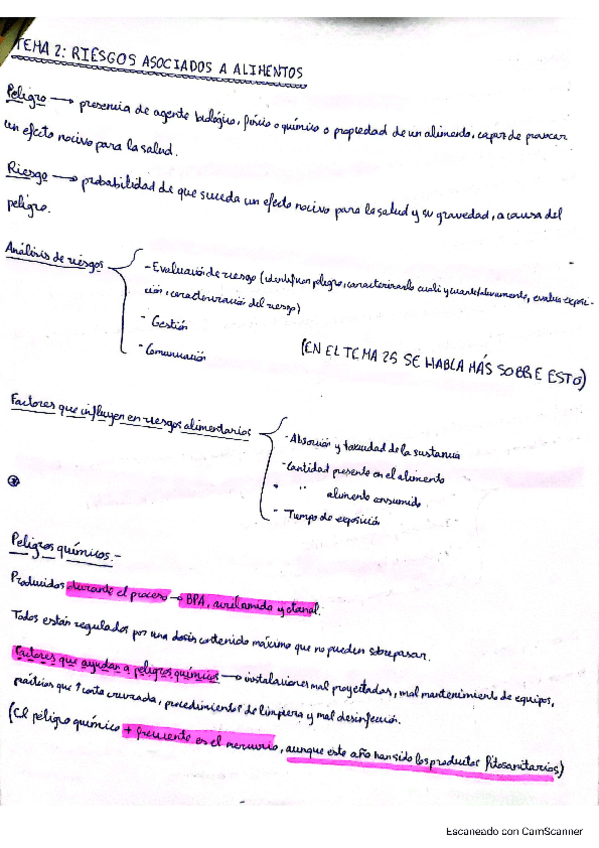 TEMA 2: RIESGOS ASOCIADOS A ALIMENTOS
Peligro → presencia de agente biológico, físico o químico o propiedad de un alimento, capaz de provocar
un efecto nocivo para la salud.
Riesgo → probabilidad de que suceda un efecto nocivo para la salud y su gravedad, a causa del
peligro.
Análisis de riesgos
- Evaluación de riesgo (identifican peligro, caracterizarlo cuali y cuantitativamente, evalua exposi-
ción, caracterización del riesgo)
- Gestión
- Comunicación
(EN EL TEMA 25 SE HABLA MÁS SOBRE ESTO)
Factores que influyen en riesgos alimentarios
- Absorción y toxicidad de la sustancia
- Cantidad presente en el alimento
" " alimento consumido
- Tiempo de exposición
Peligros químicos.-
Producidos durante el proceso → BPA, acrilamida y etanal.
Todos están regulados por una dosis contenido máximo que no pueden sobrepasar.
Factores que ayudan a peligros químicos → instalaciones mal proyectadas, mal mantenimiento de equipos,
prácticas que ↑ conta cruzada, procedimientos de limpieza y mal desinfección.
(El peligro químico + frecuente es el mercurio, aunque este año han sido los productos fitosanitarios)
Escaneado con CamScanner